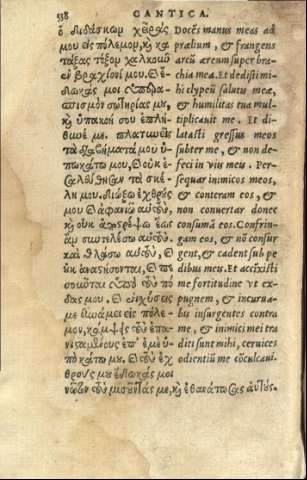 538
CANTICA.
ὁ διδάσκων χεῖράς
μου εἰς πόλεμον, καὶ κα
τάξας τόξον χαλκοῦν
ἐν βραχίονί μου. καὶ ἔ
δωκάς μοι ὑπερα-
σπισμὸν σωτηρίας μου,
καὶ ἡ ὑπακοή σου ἐπλή
θυνέ με. πλατυνεῖς
τὰ διαβήματά μου ὑ
ποκάτω μου. καὶ οὐκ ἐ
σαλεύθησαν τὰ σκέ-
λη μου. διώξω ἐχθρούς
μου καὶ ἀφανιῶ αὐτούς,
καὶ οὐκ ἀποστρέψω ἕως
ἂν συντελέσω αὐτούς.
καὶ θλάσω αὐτούς, καὶ οὐ
κ ἀναστήσονται, καὶ πε
σοῦνται ὑπὸ τοὺς πό
δας μου. καὶ ἰσχύσεις
με δυνάμει εἰς πόλε-
μον, κάμψεις τοὺς ἐπα-
νισταμένους ἐπ' ἐμὲ ὑ
ποκάτω μου. καὶ τοὺς ἐχ
θρούς μου ἔδωκάς μοι
νῶτον τοὺς μισοῦντάς με, καὶ ἐθανάτωσας αὐτούς.
Docēs manus meas ad
prælium, & frangens
arcū æreum super bra-
chia mea. Et dedisti mi-
hi clypeū salutis meæ,
& humilitas tua mul-
tiplicauit me. Et di-
latasti gressus meos
subter me, & non de-
feci in viis meis. Per-
sequar inimicos meos,
& conteram eos, &
non conuertar donec
consumā eos. Confrin-
gam eos, & nō consur
gent, & cadent sub pe
dibus meis. Et accinxisti
me fortitudine vt ex-
pugnem, & incurua-
bis insurgentes contra
me, & inimici mei tra
diti sunt mihi, ceruices
odientium me cōculcaui.